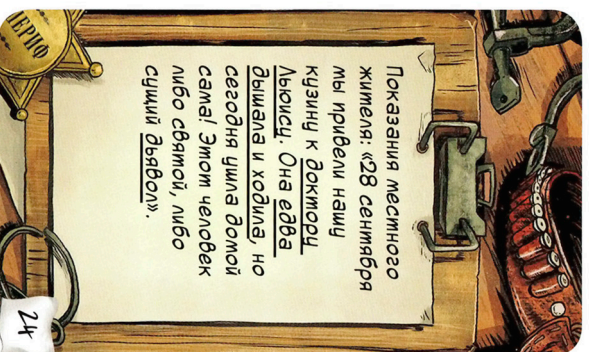 Показания местного
жителя: «28 сентября
мы привели нашу
кузину к доктору
Льюису. Она едва
дышала и ходила, но
сегодня ушла домой
сама! Этот человек
либо святой, либо
сущий дьявол».
ЕРИФ
24